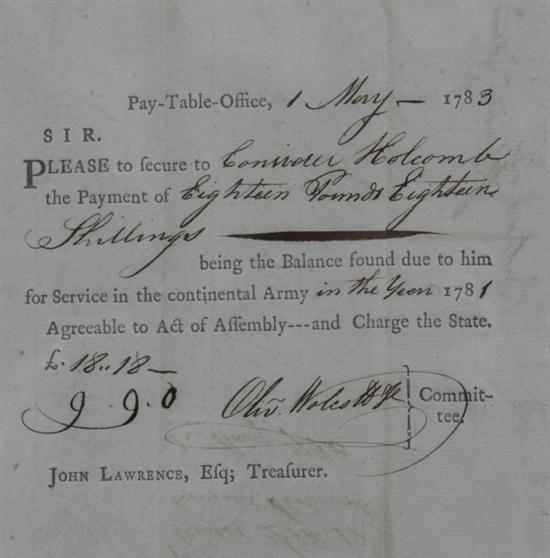 Pay-Table-Office, 1 May — 1783
SIR.
PLEASE to ſecure to Holcomb
the Payment of Eighteen Pounds Eighteen
Shillings
being the Balance found due to him
for Service in the continental Army in the Year 1781
Agreeable to Act of Aſſembly---and Charge the State.
£. 18..18—
9 9.0 Oliv. Wolcott Jr } Commit-
tee.
JOHN LAWRENCE, Eſq; Treaſurer.